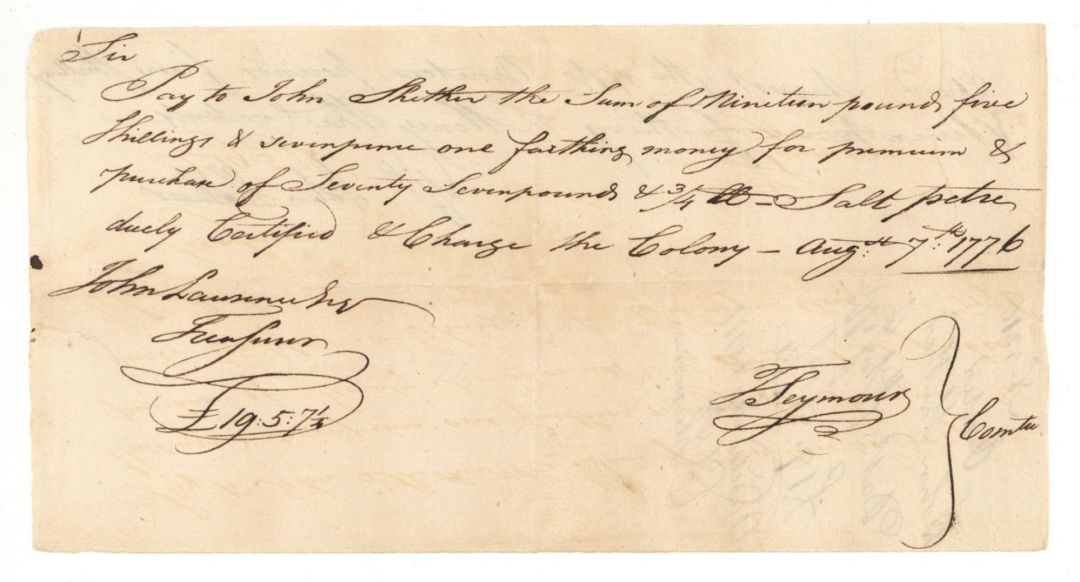 Sir
Pay to John Shether the Sum of Nineteen pounds five
Shillings & sevenpence one farthing money for premium &
purchase of Seventy Sevenpounds & 3/4 lb - Salt petre
duely Certified & Charge the Colony - Augst 7th. 1776
John Lawrence Esqr
Treasurer
£19:5:7¼
T Seymour } Comtee